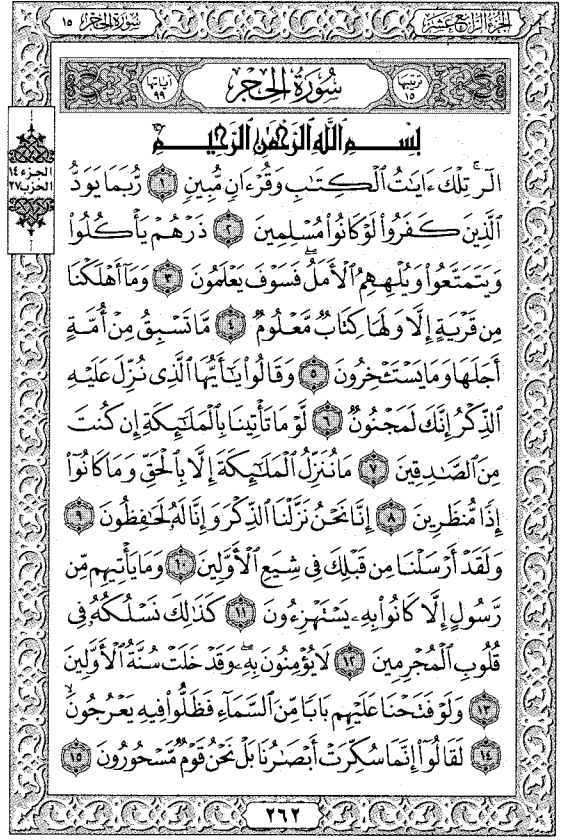 الجزء الرابع عشر
سورة الحجر ١٥
ترتيبها ١٥
سُورَةُ الحِجْرِ
آياتها ٩٩
بِسْمِ ٱللَّهِ ٱلرَّحْمَٰنِ ٱلرَّحِيمِ
الجزء ١٤
الحزب ٢٧
الٓر ۚ تِلْكَ ءَايَٰتُ ٱلْكِتَٰبِ وَقُرْءَانٍ مُّبِينٍ ١ رُّبَمَا يَوَدُّ
ٱلَّذِينَ كَفَرُوا۟ لَوْ كَانُوا۟ مُسْلِمِينَ ٢ ذَرْهُمْ يَأْكُلُوا۟
وَيَتَمَتَّعُوا۟ وَيُلْهِهِمُ ٱلْأَمَلُ ۖ فَسَوْفَ يَعْلَمُونَ ٣ وَمَآ أَهْلَكْنَا
مِن قَرْيَةٍ إِلَّا وَلَهَا كِتَابٌ مَّعْلُومٌ ٤ مَّا تَسْبِقُ مِنْ أُمَّةٍ
أَجَلَهَا وَمَا يَسْتَـْٔخِرُونَ ٥ وَقَالُوا۟ يَٰٓأَيُّهَا ٱلَّذِى نُزِّلَ عَلَيْهِ
ٱلذِّكْرُ إِنَّكَ لَمَجْنُونٌ ٦ لَّوْ مَا تَأْتِينَا بِٱلْمَلَٰٓئِكَةِ إِن كُنتَ
مِنَ ٱلصَّٰدِقِينَ ٧ مَا نُنَزِّلُ ٱلْمَلَٰٓئِكَةَ إِلَّا بِٱلْحَقِّ وَمَا كَانُوٓا۟
إِذًا مُّنظَرِينَ ٨ إِنَّا نَحْنُ نَزَّلْنَا ٱلذِّكْرَ وَإِنَّا لَهُۥ لَحَٰفِظُونَ ٩
وَلَقَدْ أَرْسَلْنَا مِن قَبْلِكَ فِى شِيَعِ ٱلْأَوَّلِينَ ١٠ وَمَا يَأْتِيهِم مِّن
رَّسُولٍ إِلَّا كَانُوا۟ بِهِۦ يَسْتَهْزِءُونَ ١١ كَذَٰلِكَ نَسْلُكُهُۥ فِى
قُلُوبِ ٱلْمُجْرِمِينَ ١٢ لَا يُؤْمِنُونَ بِهِۦ ۖ وَقَدْ خَلَتْ سُنَّةُ ٱلْأَوَّلِينَ
١٣ وَلَوْ فَتَحْنَا عَلَيْهِم بَابًا مِّنَ ٱلسَّمَآءِ فَظَلُّوا۟ فِيهِ يَعْرُجُونَ ۙ
١٤ لَقَالُوٓا۟ إِنَّمَا سُكِّرَتْ أَبْصَٰرُنَا بَلْ نَحْنُ قَوْمٌ مَّسْحُورُونَ ١٥
٢٦٢